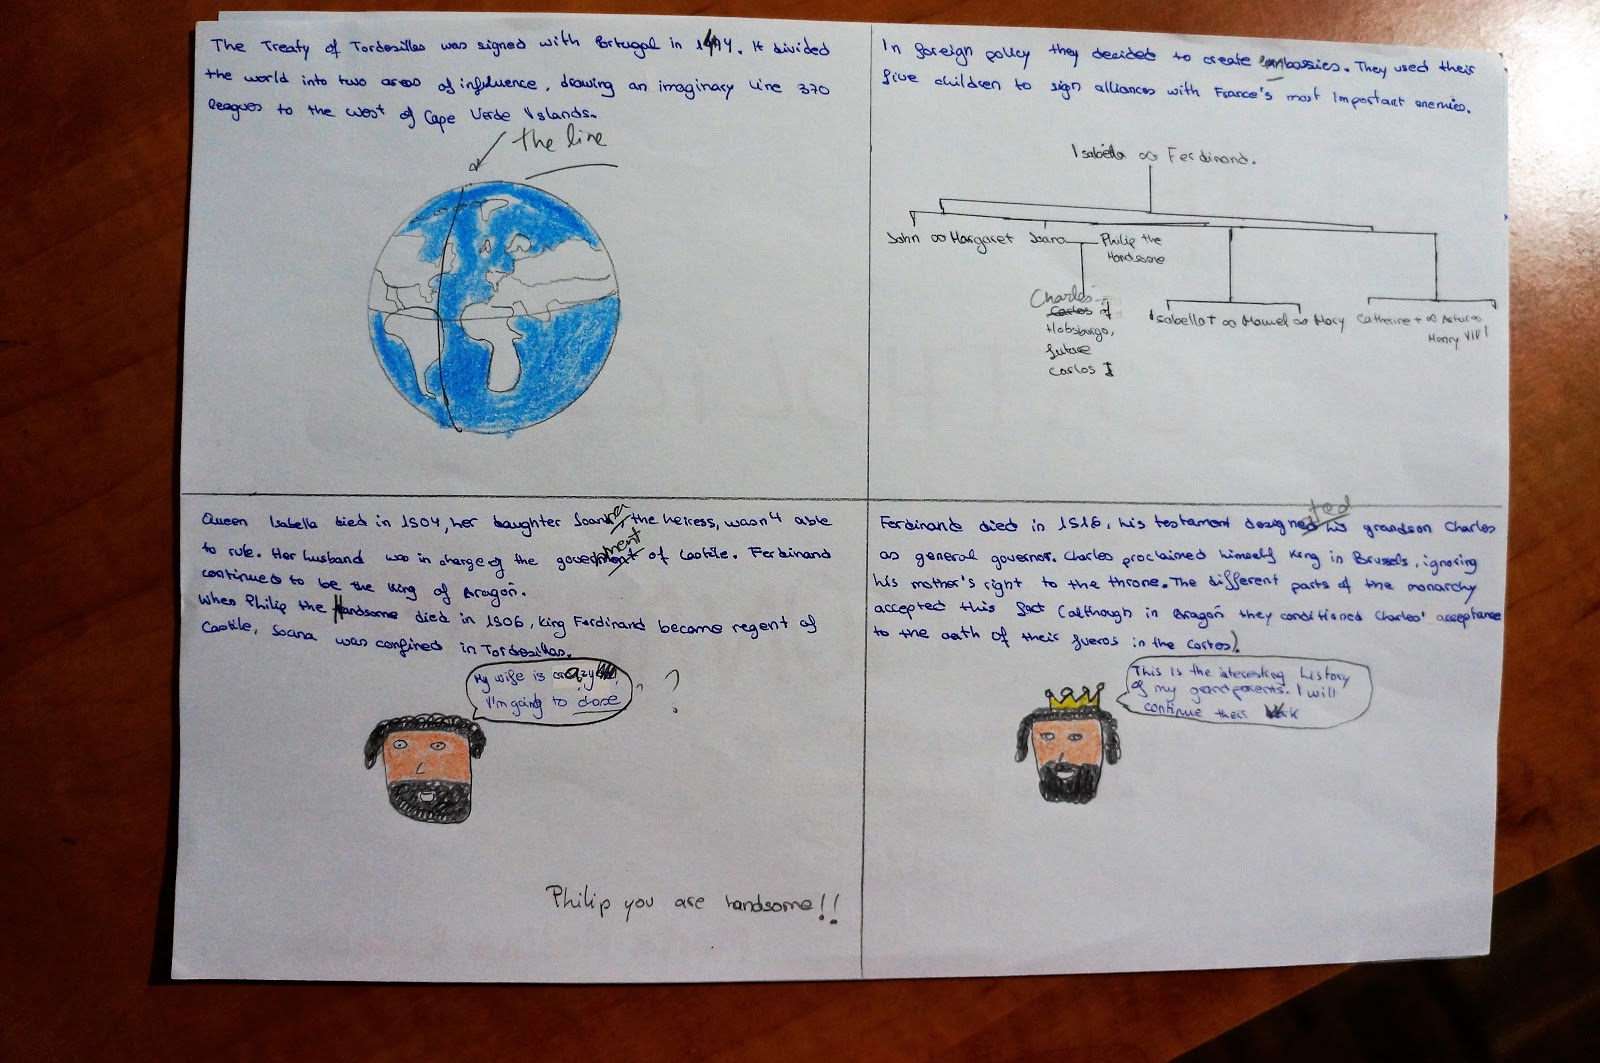 The Treaty of Tordesillas was signed with Portugal in 1494. It divided
the world into two areas of influence, drawing an imaginary line 370
leagues to the west of Cape Verde Islands.
the line
In foreign policy they decided to create embassies. They used their
five children to sign alliances with France's most important enemies.
Isabella ∞ Ferdinand.
John ∞ Margaret Joana Philip the
Handsome
Charles
Carlos of
Habsburgo,
future
Carlos I
Isabella † ∞ Manuel ∞ Mary
Catherine + ∞ Artur ∞
Henry VIII
Queen Isabella died in 1504, her daughter Joana, the heiress, wasn't able
to rule. Her husband was in charge of the government of Castile. Ferdinand
continued to be the King of Aragon.
When Philip the Handsome died in 1506, King Ferdinand became regent of
Castile, Joana was confined in Tordesillas.
My wife is crazy
I'm going to
? ?
Philip you are handsome!!
Ferdinand died in 1516, his testament designated his grandson Charles
as general governor. Charles proclaimed himself King in Brussels, ignoring
his mother's right to the throne. The different parts of the monarchy
accepted this fact (although in Aragon they conditioned Charles' acceptance
to the oath of their fueros in the Cortes).
This is the interesting history
of my grandparents. I will
continue their work